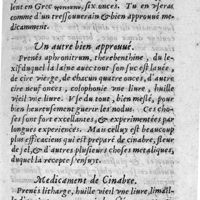 lent en Grec opoponex, six onces. Tu en useras
comme d'un tressouuerain & bien approuué me-
dicamment.
Un autre bien approuué.
Prenés aphronitrum, therebenthine, du le-
xif duquel la laine auec tout son suc est lauée,
de cire vierge, de chacun quatre onces, d'autre
cire neuf onces, colophonie vne liure, huille
vieil vne liure. I'se du tout, bien meslé, pour
bien heureusement guerir les nodus. Ces cho-
ses sont fort excellantes, & experimentées par
longues experiences. Mais cellui est beaucoup
plus efficacieus qui est preparé de cinabre, fleur
de sel, & d'autres plusieurs choses metalliques,
duquel la recepte s'ensuyt.
Medicament de Cinabre.
Prenés litharge, huille vieil vne liure, limail-